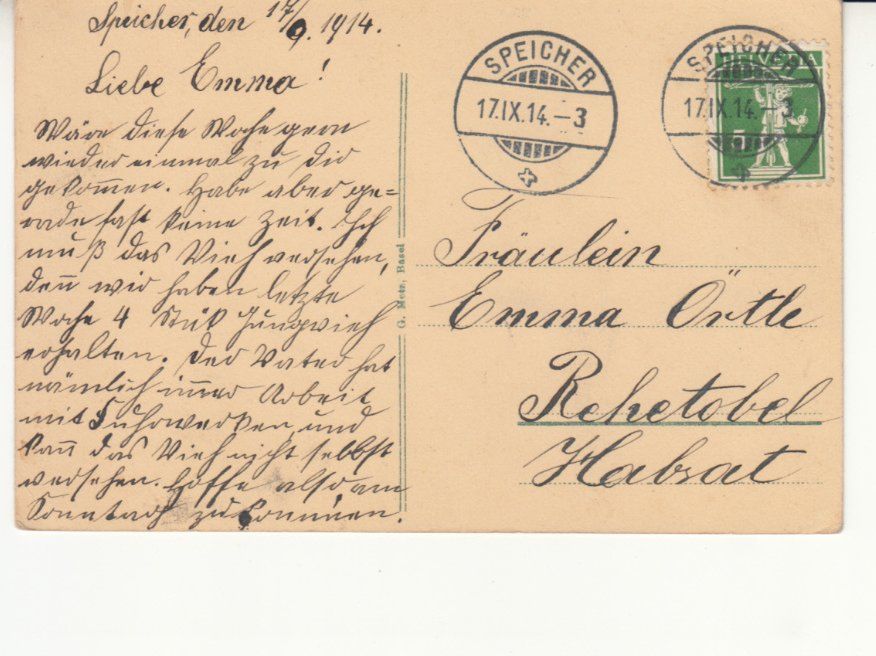 Speicher, den 17/9. 1914.
Liebe Emma!
Wäre diese Woche gern
wieder einmal zu dir
gekommen. Habe aber ge=
rade fast keine Zeit. Ich
muß das Vieh versehen,
deñ wir haben letzte
Woche 4 Stük Jungvieh
erhalten. Der Vater hat
nämlich im̃er Arbeit
mit Fuhrwerken, und
kañ das Vieh nicht selbst
versehen. Hoffe also, am
Sonntag zu kommen.
G. Metz, Basel
SPEICHER
17.IX.14.–3
SPEICHER
17.IX.14.–3
HELVETIA
5
Fräulein
Emma Örtle
Rehetobel
Habsat